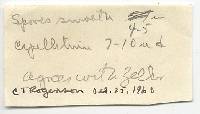 Spores smooth 4-5 µ
capillitium 7-10 µ d
agrees with Zeller
C T Rogerson Oct. 25, 1960